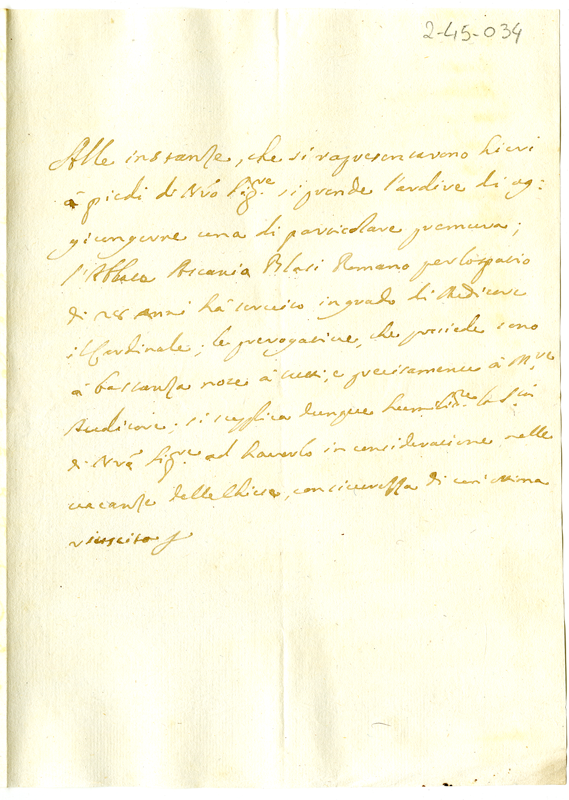 2-45-034
Alle instanze, che si rapresentarono hieri
à piedi di Nro Sigre. si prende l'ardire di ag:
giungerne una di particolare premura;
l'Abbate Ascanio Blasi Romano per lo spatio
di 28 anni hà servito in grado di Auditore
il Cardinale; le prerogative, che possiede sono
à bastanza note à tutti, e precisamente à Mr.
Auditore: si supplica dunque humilme. la Stà
di Nrô Sigre ad haverlo in consideratione nelle
vacanze delle Chiese, con sicurezza di ottima
riuscita